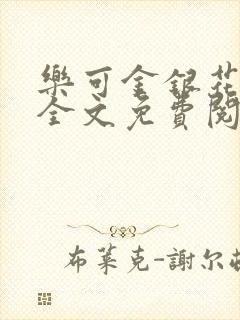 樂可金銀花
全文免費閱
布萊克-謝尔